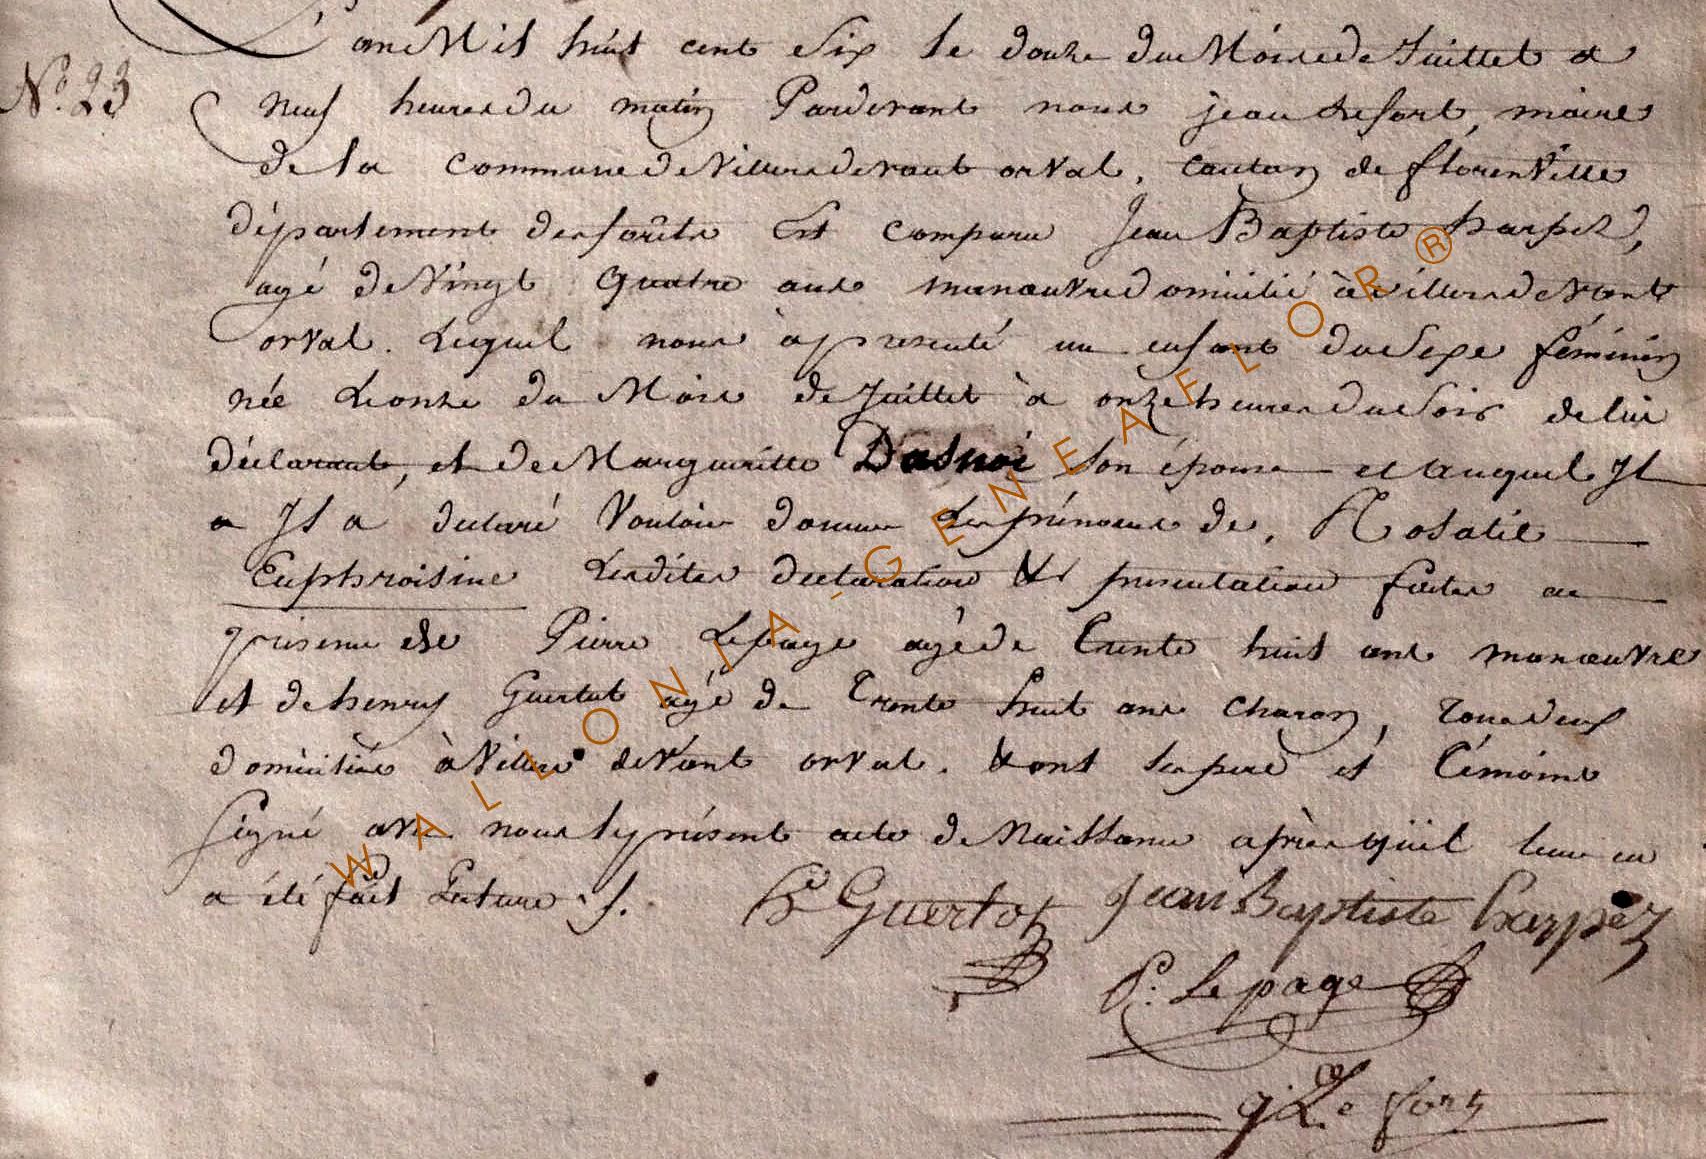 N.º 23
L'an Mil huit cent Six le douze du Mois de Juillet a
neuf heures du matin Pardevant nous jean Lefort, maire
de la commune de Villers devant orval, canton de florenVille
département des forêts Est comparu Jean Baptiste harpez,
agé de Vingt quatre ans manœuvre domicilié à villers devant
orval. Lequel nous à presenté un enfant du Sexe féminin
née Le onze du Mois de Juillet à onze heures du soir de lui
déclarant, et de Margueritte Dasnoi son épouse et auquel Jl
a Jl a declaré Vouloir donner Les prénoms de, Rosalie
Euphroisine Lesdites declaration & presentation faites en
présence de Pierre Lepage agé de trente huit ans manœuvre
et de henry Guertot agé de trente huit ans charon, tous deux
domiciliés à Villers devant orval. & ont les pere et témoins
signé avec nous le présent acte de Naissance après qu'il leur en
a été fait Lecture ./.
h Guertot Jean Baptiste harpéz
P: Lepage
j Le fort
WALLONIA-GENEAFLOR®